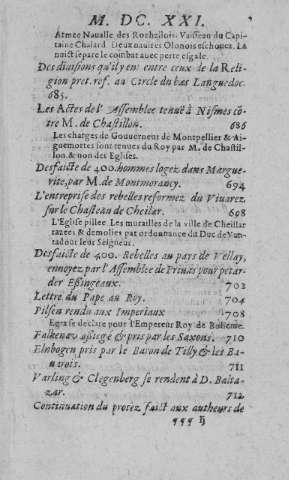 M. DC. XXI.
Armee Naualle des Rochelois. Vaisseau du Capi-
taine Chalard. Deux nauires Olonois eschouez. La
nuict separe le combat auec perte esgale.
Des diuisions qu'il y eut entre ceux de la Reli-
gion pret. ref. au Cercle du bas Languedoc.
685.
Les Actes de l'Assemblee tenuë à Nismes cō-
tre M. de Chastillon. 686
Les charges de Gouuernent de Montpellier & Ai-
guemottes sont tenues du Roy par M. de Chastil-
lon & non des Eglises.
Desfaicte de 400. hommes logez dans Margue-
rite, par M. de Montmorancy. 694
L'entreprise des rebelles reformez du Viuarez
sur le Chasteau de Cheilar. 698
L'Eglise pillee. Les murailles de la ville de Cheillar
razees & demolies par ordonnance du Duc de Van-
tadour leur Seigneur.
Desfaicte de 400. Rebelles au pays de Vellay,
enuoyez par l'Assemblee de Priuas pour petar-
der Essingeaux. 702
Lettre du Pape au Roy. 704
Pilsen rendu aux Imperiaux 708
Egra se declare pour l'Empereur Roy de Boheme.
Falkenau assiegé & pris par les Saxons. 710
Elnbogen pris par le Baron de Tilly & les Ba-
uarois. 711
Varling & Clegenberg se rendent à D. Balta-
zar. 712
Continuation du procez faict aux autheurs de
¶¶¶ ij